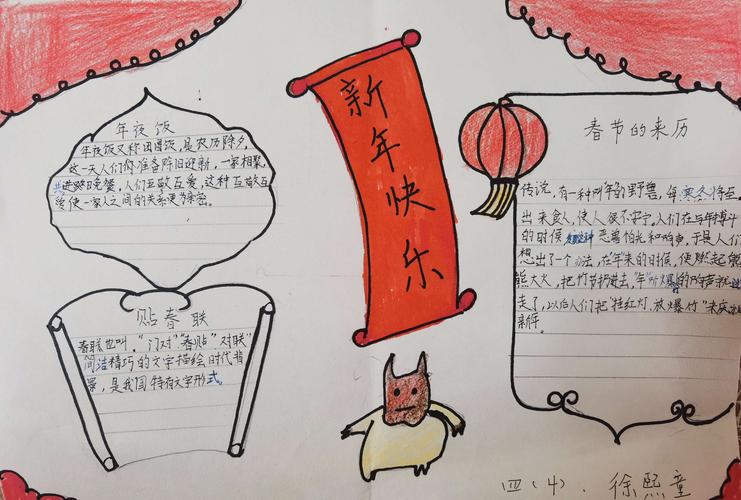 年夜饭
年夜饭又称团圆饭,是农历除夕,
这一天人们你准备阵旧迎新,一家相聚,
共进晚餐,人们互敬互爱,这种互敬互
爱使一家人之间的关系更为亲密。
新年快乐
春节的来历
传说,有一种叫年的野兽,每,寒冬将至。
出来食人,使人很不安宁。人们在与年搏斗
的时候 恶兽怕光和响声,于是人们
想出了一个办法,在年来的时候,使燃起熊
熊大火,把竹节扔进去,"年"听爆的响声就
走了,以后人们把"挂红灯,放爆竹"来庆
新年。
贴春联
春联也叫,"门对""春贴"对联"
简洁精巧的文字描绘时代背
景,是我国特有文字形式。
四(4).徐熙童